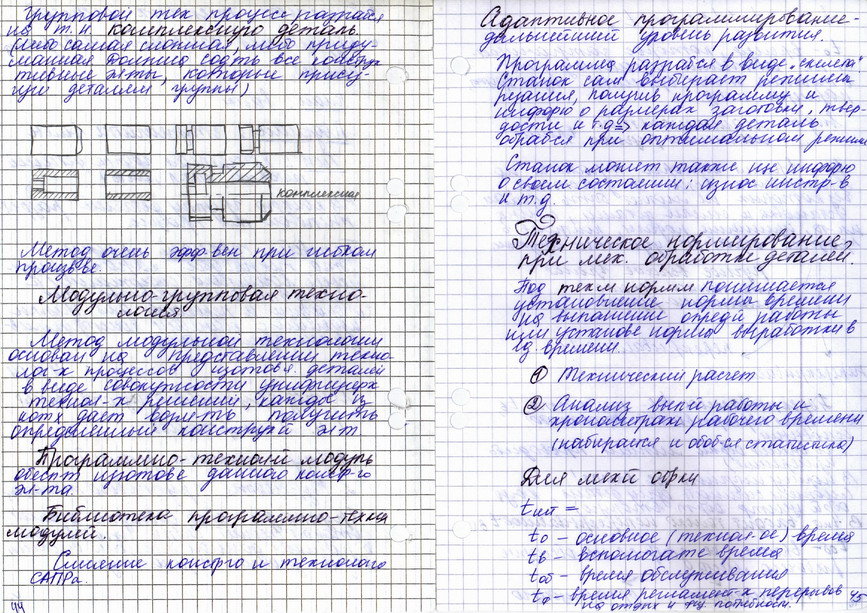 Групповой тех процесс разраб-ся
на т.н. комплексную деталь
(либо самая сложная, либо приду-
манная должна содть все конструк
тивные эл-ты, которые прису-
щи деталям группы)
комплексная
Метод очень эфф-вен при гибком
произв-ве.
Модульно-групповая техно-
логия
Метод модульной технологии
основан на представлении техно-
лог-х процессов изготовл. деталей
в виде совокупности унифицирх
технол-х решений, каждое из
котх дает возм-ть получить
определенный конструкй эл-т
Программно-технолй модуль
обеспт изготове данного констр-го
эл-та
Библиотека программно-техни
модулей.
Слияние констрго и технолого
САПРа.
44
Адаптивное программирование-
дальнейший уровень развития.
Программа разраб-ся в виде "скелета"
Станок сам выбирает режимы
резания, получив программу и
инфорю о размерах заготовки, твер
дости и т.д => каждая деталь
обраб-ся при оптимальном режиме
Станок может также инфорю
о своем состоянии: износ инстр-в
и т.д
Техническое нормирование
при мех. обработке деталей.
Под техм нормм понимается
установление нормы времени
на выполнение определ работы
или установе нормы выработки в
ед времени
① Технический расчет
② Анализ выпй работы и
хронометраж рабочего времени
(набирался и обоб-ся статистика)
Для мехй обрки
tшт =
tо - основное (технол-ое) время
tв - вспомогате время
tоб - время обслуживания
tф - время регламено-х перерывов
на отдых и физ потребности.
45